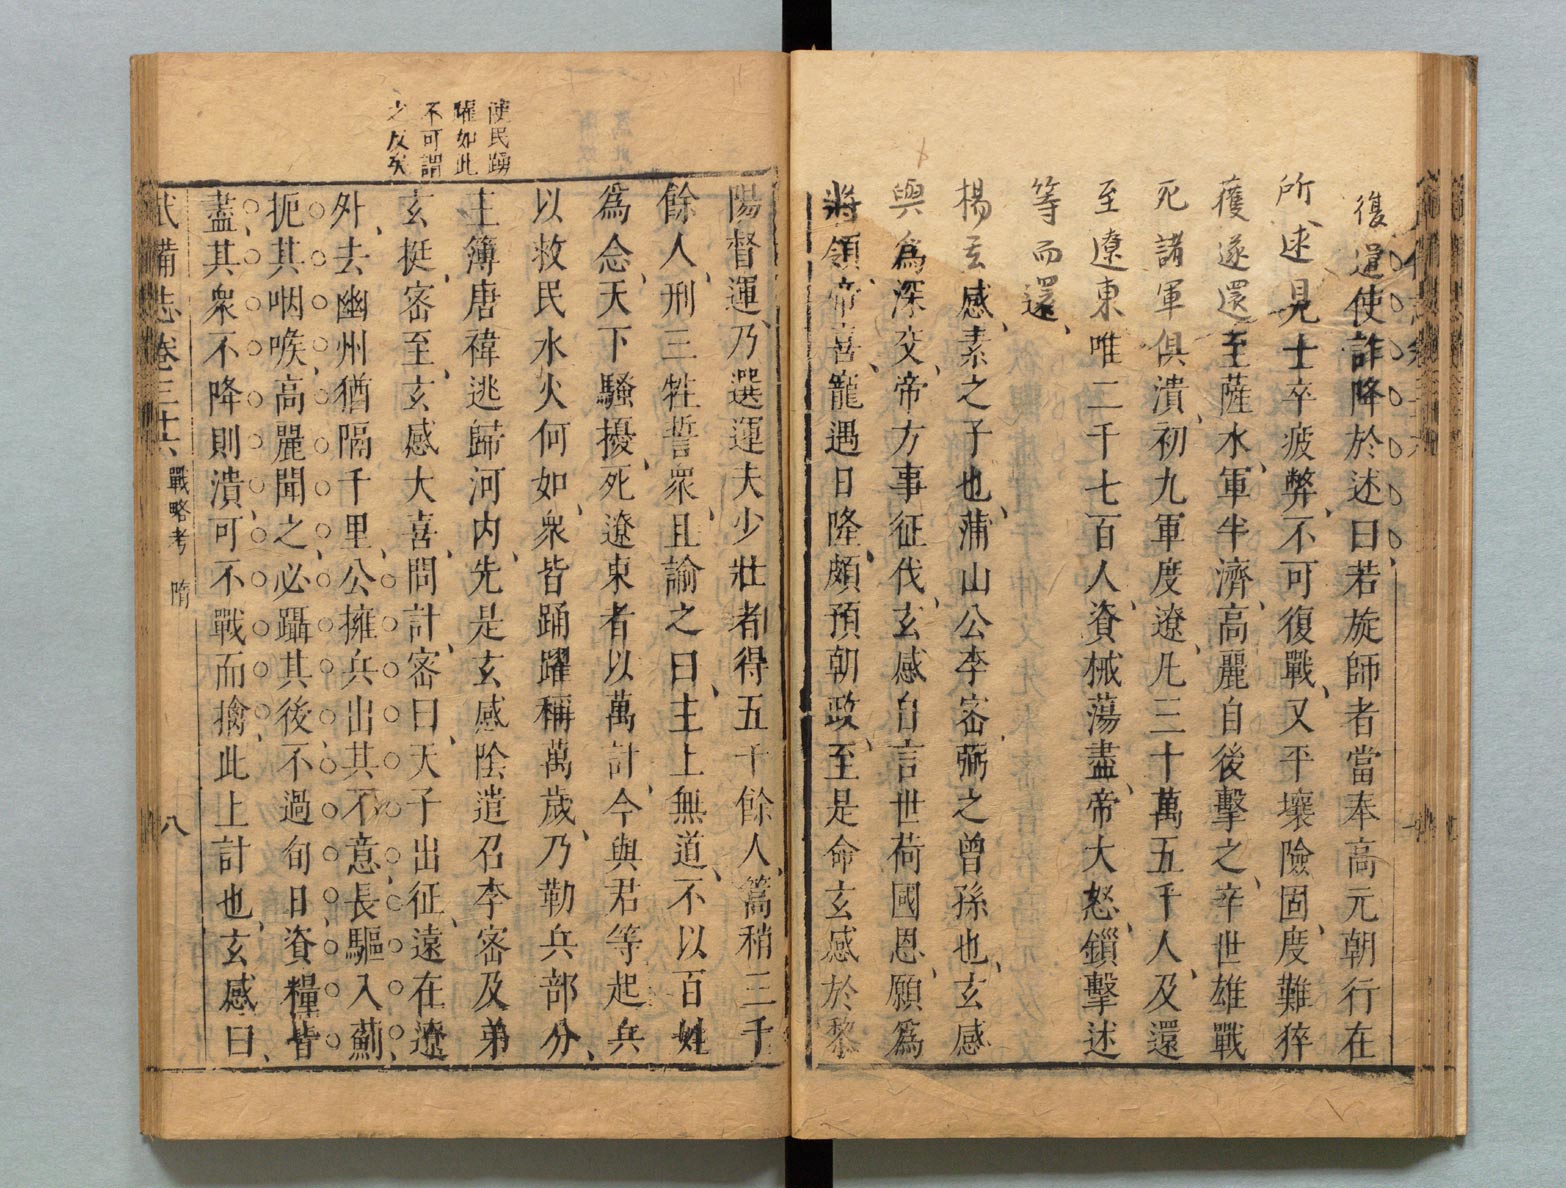 復遣使詐降於述曰若旋師者當奉高元朝行在
所述見士卒疲弊不可復戰又平壤險固度難猝
獲遂還至薩水軍半濟高麗自後擊之辛世雄戰
死諸軍俱潰初九軍度遼凡三十萬五千人及還
至遼東唯二千七百人資械蕩盡帝大怒鎖擊述
等而還
楊玄感素之子也蒲山公李密弼之曾孫也玄感
與為深交帝方事征伐玄感自言世荷國恩願為
將領帝喜寵遇日隆頗預朝政至是命玄感於黎
陽督運乃選運夫少壯者得五千餘人篙稍三千
餘人刑三牲誓衆且諭之曰主上無道不以百姓
為念天下騷擾死遼東者以萬計今與君等起兵
以救民水火何如衆皆踊躍稱萬歲乃勒兵部分
主簿唐禕逃歸河內先是玄感陰遣召李密及弟
玄挺密至玄感大喜問計密曰天子出征遠在遼
外去幽州猶隔千里公擁兵出其不意長驅入薊
扼其咽喉高麗聞之必躡其後不過旬日資糧皆
盡其衆不降則潰可不戰而擒此上計也玄感曰
使民踴
躍如此
不可謂
之反矣
武備志卷三十六 戰略考 隋 八